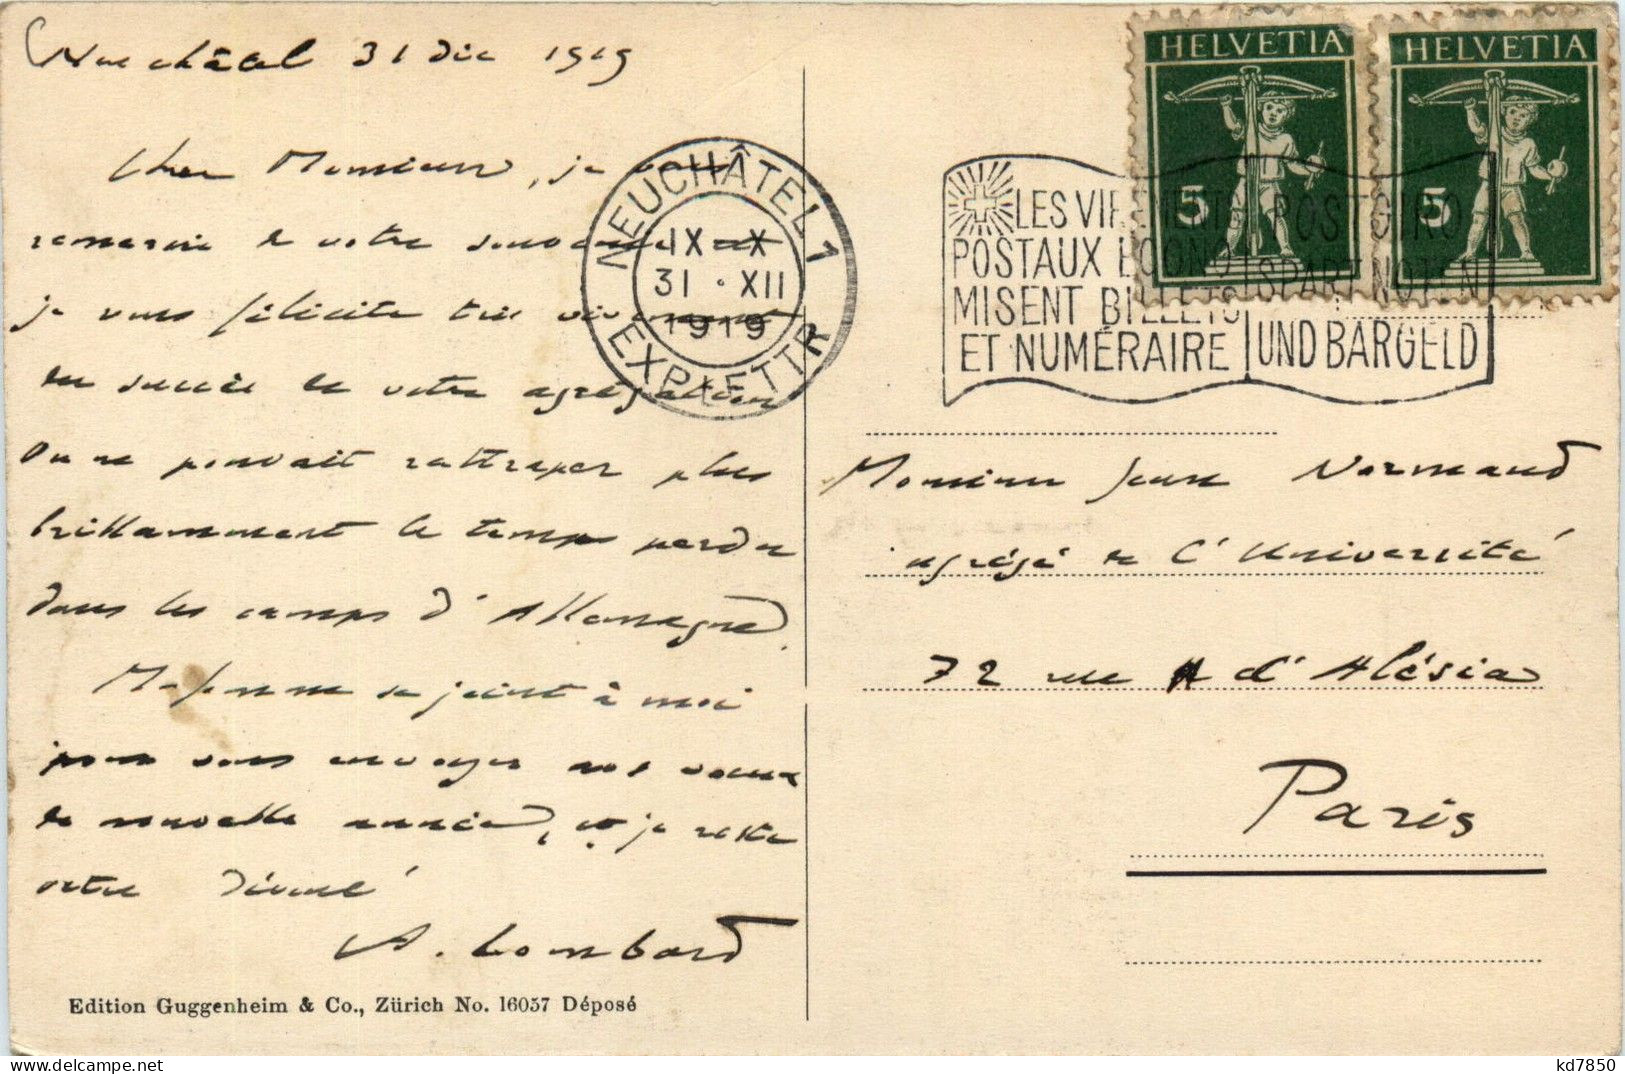 Neuchâtel 31 dec 1919
Cher Monsieur, je vous
remercie de votre souvenir
je vous félicite très vivement
du succès de votre agrégation
On ne pouvait rattraper plus
brillamment le temps perdu
dans les camps d'Allemagne.
Ma femme se joint à moi
pour vous envoyer nos voeux
de nouvelle année, et je reste
votre dévoué
A. Lombard
Edition Guggenheim & Co., Zürich No. 16057 Déposé
NEUCHÂTEL 1
IX-X
31·XII
1919
EXP. LETTR.
LES VIREMENTS
POSTAUX ECONO
MISENT BILLETS
ET NUMÉRAIRE
POSTGIRO
SPART NOTEN
UND BARGELD
HELVETIA
5
HELVETIA
5
Monsieur Jean Normand
agrégé de l'Université
72 rue d'Alésia
Paris
kd7850